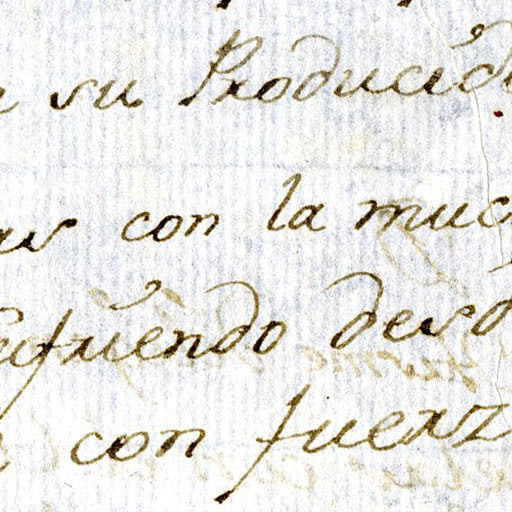 su Producid
con la muc
sufriendo desd
con fuerz